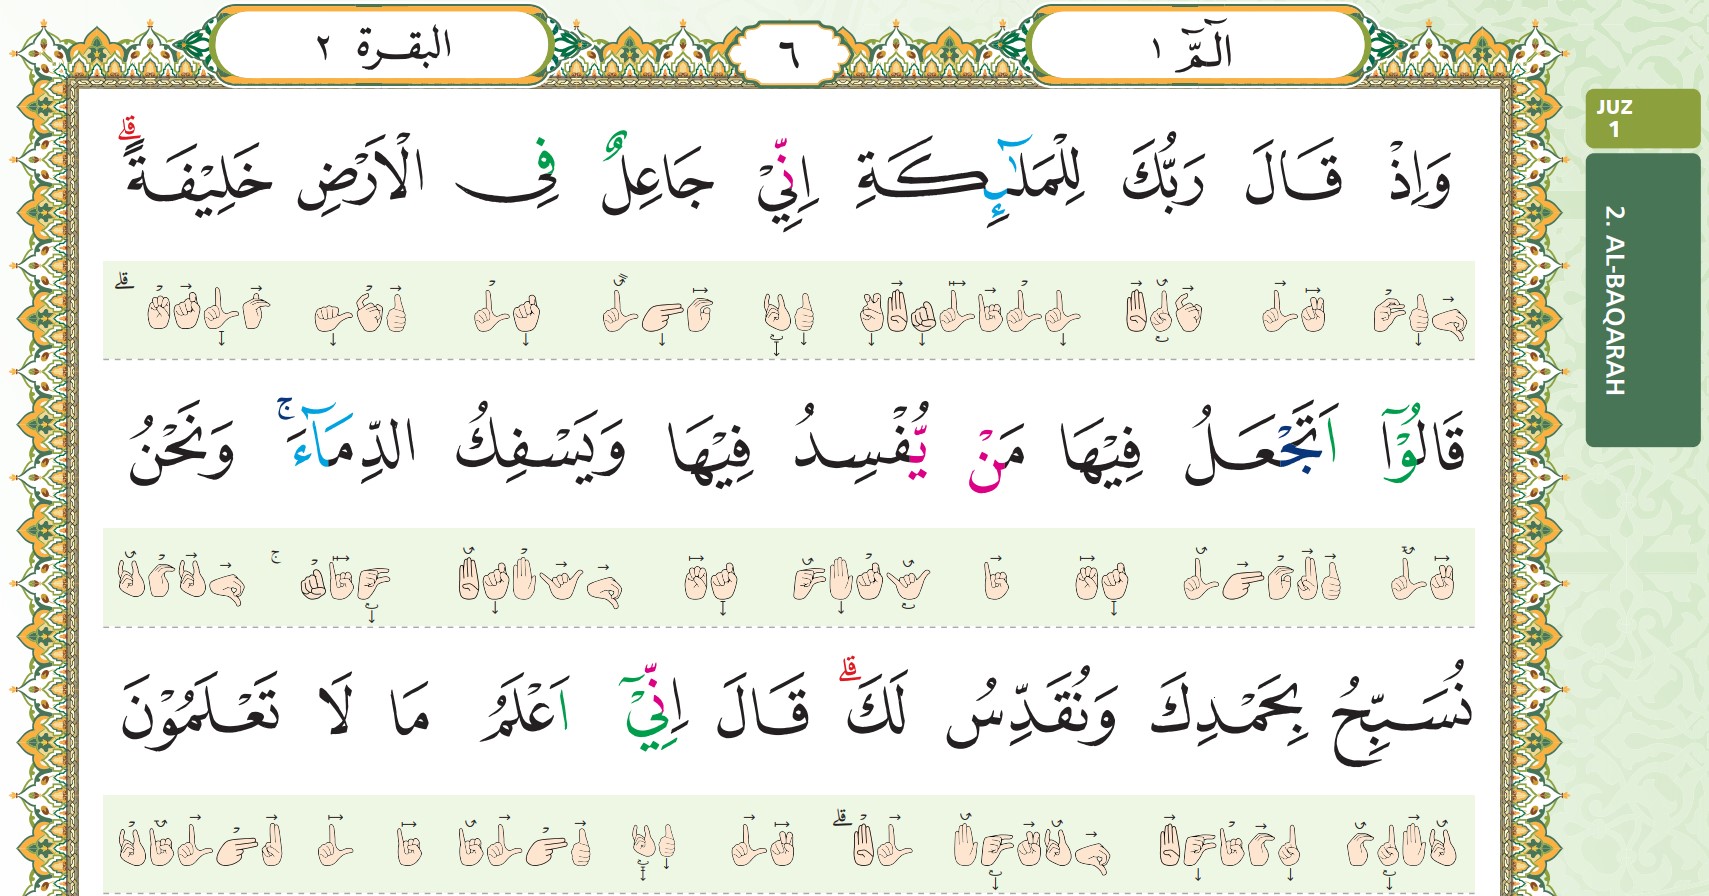 الٓمّٓ ١
٦
البقرة ٢
JUZ
1
2. AL-BAQARAH
وَاِذْ قَالَ رَبُّكَ لِلْمَلٰۤىِٕكَةِ اِنِّيْ جَاعِلٌ فِى الْاَرْضِ خَلِيْفَةً ۗ
قَالُوْٓا اَتَجْعَلُ فِيْهَا مَنْ يُّفْسِدُ فِيْهَا وَيَسْفِكُ الدِّمَاۤءَ ۚ وَنَحْنُ
نُسَبِّحُ بِحَمْدِكَ وَنُقَدِّسُ لَكَ ۗ قَالَ اِنِّيْٓ اَعْلَمُ مَا لَا تَعْلَمُوْنَ